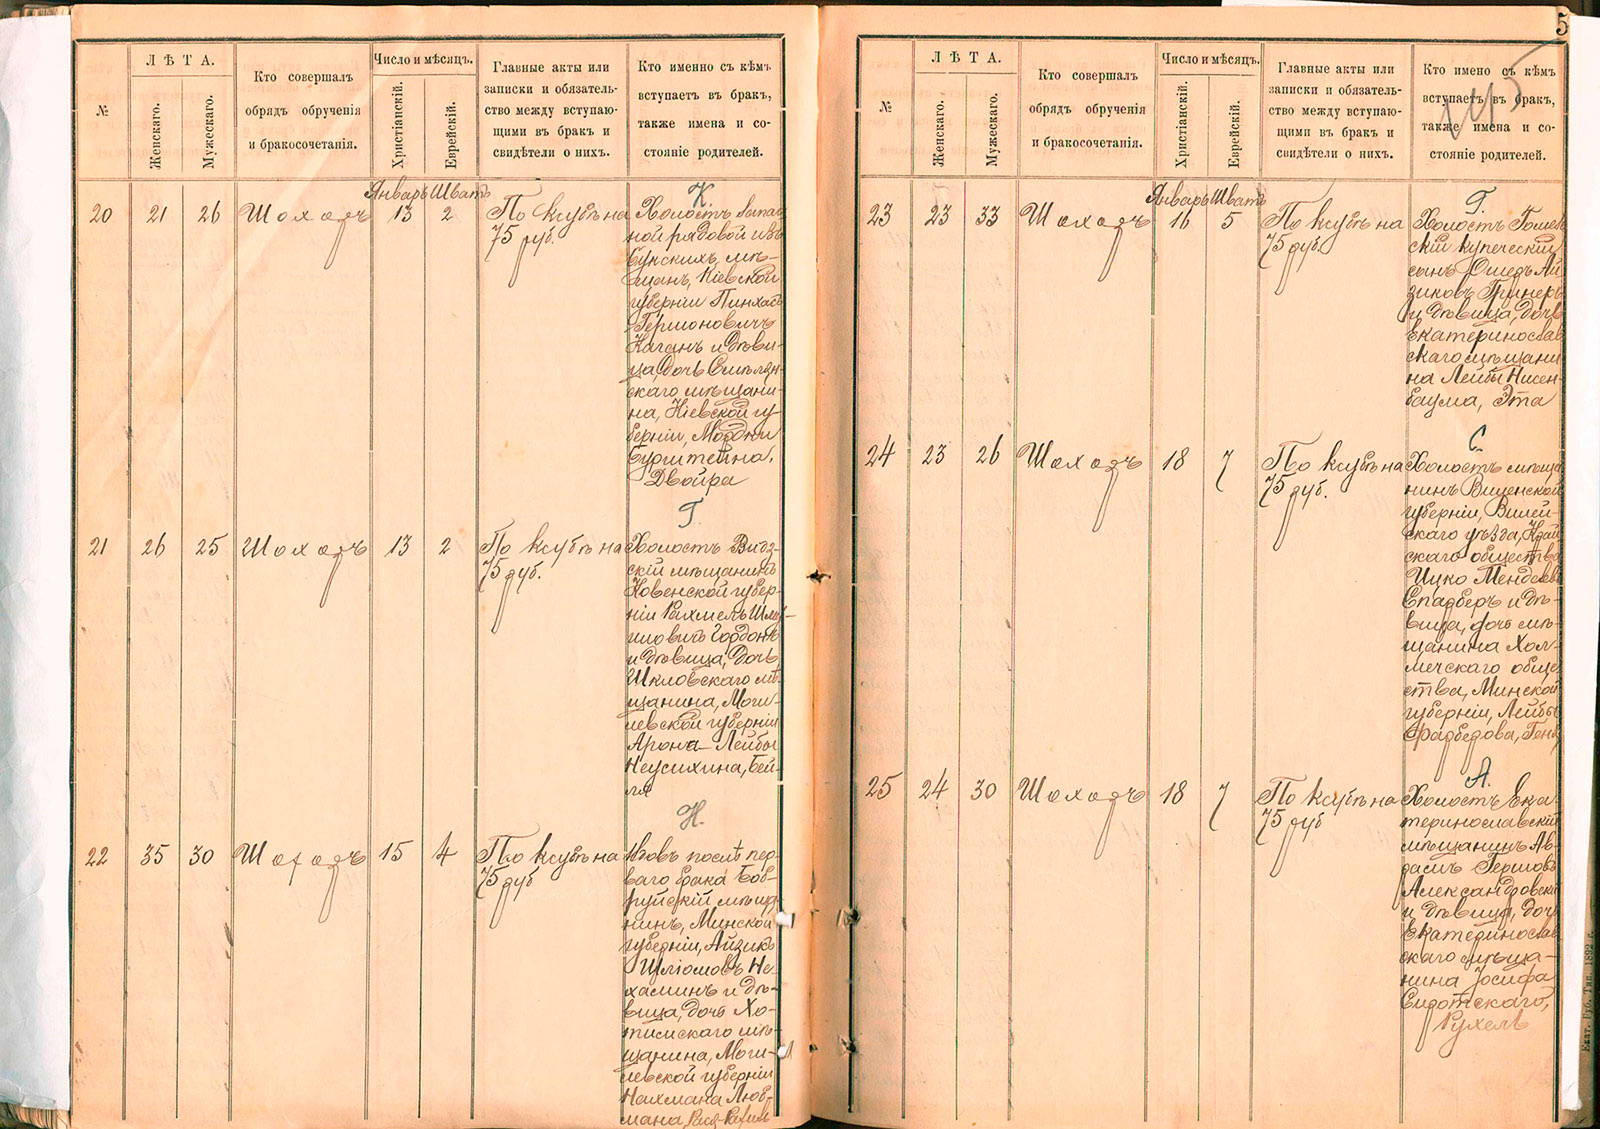 №
ЛѢТА.
Женскаго.
Мужескаго.
Кто совершалъ
обрядъ обрученія
и бракосочетанія.
Число и мѣсяцъ.
Христіанскій.
Еврейскій.
Главные акты или
записки и обязатель-
ство между вступаю-
щими въ бракъ и
свидѣтели о нихъ.
Кто именно съ кѣмъ
вступаетъ въ бракъ,
также имена и со-
стояніе родителей.
Январь Шватъ
К.
20 21 26 Шоходъ 13 2 По ксубѣ на
75 руб.
Холостъ
ной рядовой изъ
Букскихъ мѣ-
щанъ, Кіевской
губерніи Пинхасъ
Гершоновичъ
Каганъ и дѣви-
ца, дочь Смѣлян-
скаго мѣщани-
на, Кіевской гу-
берніи, Мордки
Бурштейна,
Двойра
Г.
21 26 25 Шоходъ 13 2 По ксубѣ на
75 руб.
Холостъ Видз-
скій мѣщанинъ
Ковенской губер-
ніи Рахмель
Гордонъ
и дѣвица, дочь
Шкловскаго мѣ-
щанина, Моги-
левской губерніи
Арона-Лейбы
Неусихина, Бей-
ля
Н.
22 35 30 Шоходъ 15 4 По ксубѣ на
75 руб
вдовъ послѣ пер-
ваго брака Боб-
руйскій мѣща-
нинъ, Минской
губерніи, Айзикъ
Шліомовъ Не-
хаминъ и дѣ-
вица, дочь Хо-
тимскаго мѣ-
щанина, Моги-
левской губерніи
Нахмана Люб-
мана,
5
145
№
ЛѢТА.
Женскаго.
Мужескаго.
Кто совершалъ
обрядъ обрученія
и бракосочетанія.
Число и мѣсяцъ.
Христіанскій.
Еврейскій.
Главные акты или
записки и обязатель-
ство между вступаю-
щими въ бракъ и
свидѣтели о нихъ.
Кто имено съ кѣмъ
вступаетъ въ бракъ,
также имена и со-
стояніе родителей.
Январь Шватъ
Г.
23 23 33 Шоходъ 16 5 По ксубѣ на
75 руб.
Холостъ Гомель
скій купеческій
сынъ Ошеръ Ай
зиковъ Гринеръ
и дѣвица, дочь
Екатеринослав
скаго мѣщани
на Лейбы Нисен-
баума, Эта
С.
24 23 26 Шоходъ 18 7 По ксубѣ на
75 руб.
Холостъ мѣща
нинъ Виленской
губерніи, Вилей-
скаго уѣзда, Край
скаго общества
Ицко Менделевъ
Спарберъ и дѣ-
вица, дочь мѣ-
щанина Хол-
мечскаго обще
ства, Минской
губерніи, Лейбы
Фарберова,
А.
25 24 30 Шоходъ 18 7 По ксубѣ на
75 руб
Холостъ Ека-
теринославскій
мѣщанинъ Ав-
расъ Гершовъ
Александровскій
и дѣвица, дочь
Екатеринослав
скаго мѣща-
нина Іосифа
Сиротскаго,
Рухель
Екат. Губ. Тип. 1892 г.